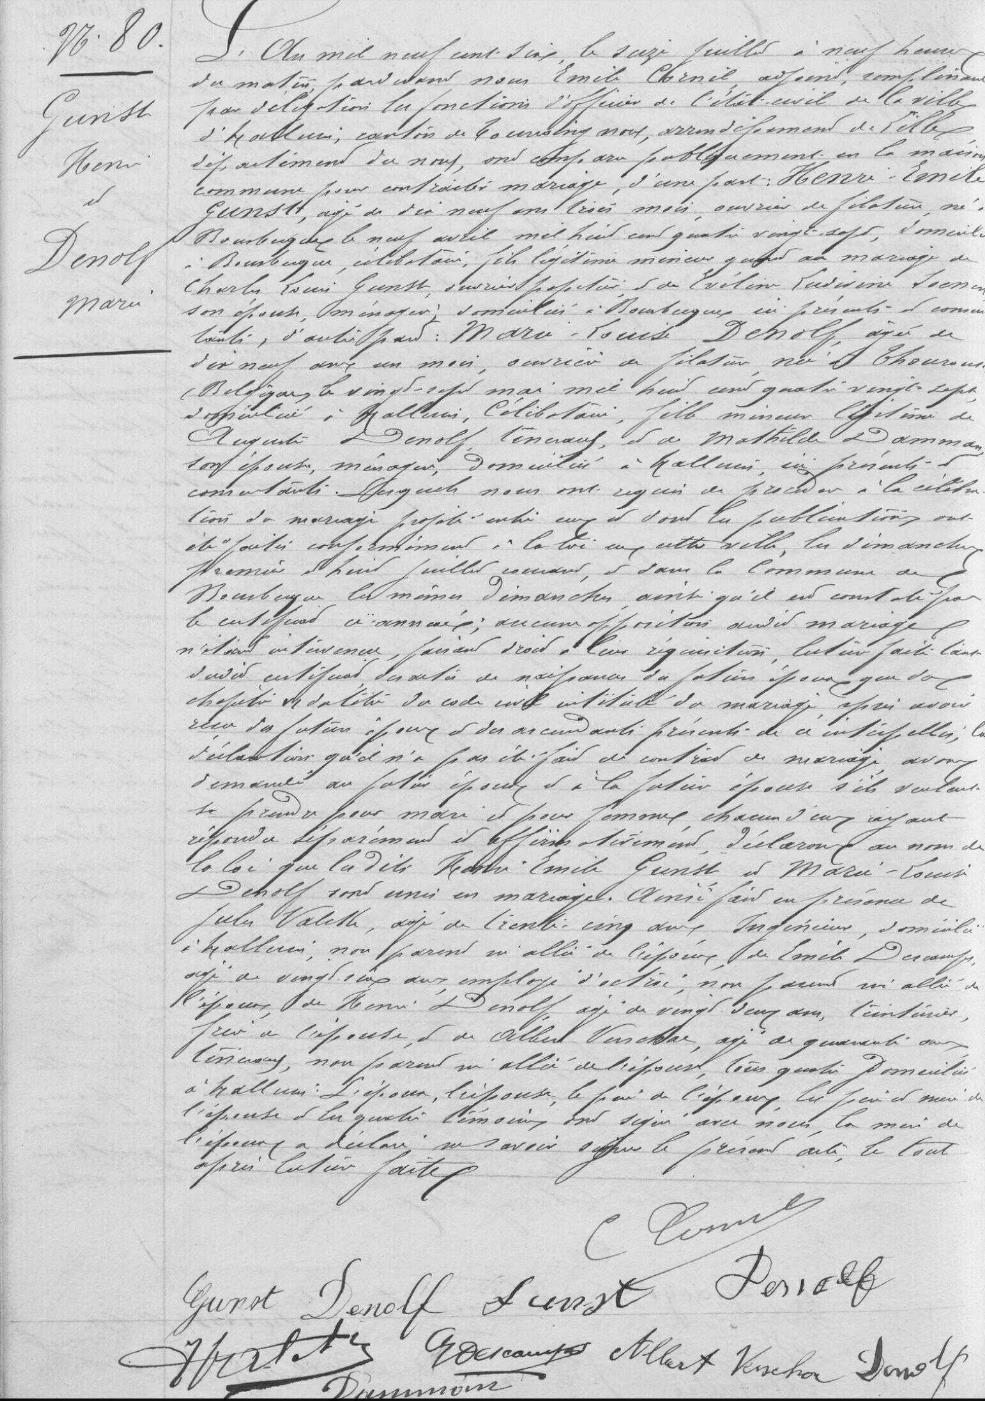 N°. 80.
Gunst
Henri
et
Denolf
Marie
L'An mil neuf cent six, le seize Juillet à neuf heures
du matin, pardevant nous Emile Cornil adjoint, remplissant
par délégation les fonctions d'officier de l'état-civil de la ville
d'Halluin, canton de Tourcoing nord, arrondissement de Lille
département du nord, ont comparu publiquement en la maison
commune pour contracter mariage, d'une part: Henri-Emile
Gunst, agé de dix neuf ans trois mois, ouvrier de filature, né à
Bousbecque le neuf avril mil huit cent quatre vingt-sept, domicilié
à Bousbecque, célibataire, fils légitime mineur quant au mariage de
Charles Louis Gunst, ouvrier papetier et de Eveline Ludivine
son épouse, ménagère, domiciliés à Bousbecque ici présents et consen
tants; d'autre part: Marie-Louise Denolf, agée de
dix neuf ans un mois, ouvrière de filature, née à Thourout
(Belgique) le vingt-sept mai mil huit cent quatre vingt-sept
domiciliée à Halluin, Célibataire, fille mineure légitime de
Auguste Denolf, tisserand, et de Mathilde Damman
son épouse, ménagère, domiciliés à Halluin, ici présents et
consentants. Lesquels nous ont requis de procéder à la célébra
tion du mariage projeté entre eux et dont les publications ont
été faites conformément à la loi en cette ville, les dimanches
premier et huit Juillet courant, et dans la Commune de
Bousbecque les mêmes Dimanches, ainsi qu'il est constaté par
le certificat ci-annexé; aucune opposition audit mariage
n'étant intervenue, faisant droit à leur réquisition, lecture faite tant
dudit certificat des actes de naissance des futurs époux que du
chapitre VI du titre du code civil intitulé du mariage après avoir
reçu des futurs époux et des ascendants présents de ce interpellés, la
déclaration qu'il n'a pas été fait de contrat de mariage, avons
demandé au futur époux et à la future épouse s'ils veulent
se prendre pour mari et pour femme, chacun d'eux ayant
répondu séparément et affirmativement, déclarons au nom de
la loi que lesdits Henri Emile Gunst et Marie-Louise
Denolf sont unis en mariage. Ainsi fait en présence de
Jules Valcke, agé de trente cinq ans Ingénieur, domicilié
à Halluin, non parent ni allié de l'époux, de Emile Descamps,
agé de vingt-six ans employé d'octroi, non parent ni allié de
l'époux, de Henri Denolf, agé de vingt deux ans, teinturier,
frère de l'épouse, et de Albert Verschae, agé de quarante ans
tisserand, non parent ni allié de l'épouse, tous quatre Domiciliés
à Halluin: L'époux, l'épouse, le père de l'époux les père et mère de
l'épouse et les quatre témoins ont signé avec nous, la mère de
l'époux a déclaré ne savoir signer le présent acte, le tout
après lecture faite
C Cornil
Gunst Denolf Gunst Denolf
EDescamps Albert Verschae Denolf
Damman